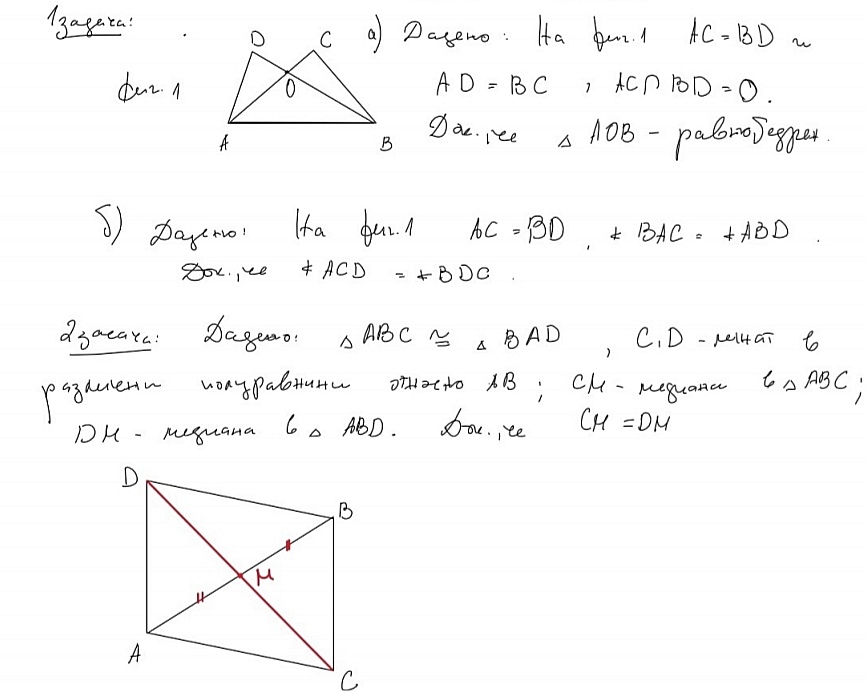 1задача:
D C а) Дадено: На фиг.1 AC = BD и
фиг. 1 O AD = BC , AC ∩ BD = O.
A B Док., че △ AOB - равнобедрен.
б) Дадено: На фиг.1 AC = BD , ∢ BAC = ∢ ABD .
Док., че ∢ ACD = ∢ BDC .
2задача: Дадено: △ ABC ≅ △ BAD , C, D - лежат в
различни полуравнини относно AB ; CM - медиана в △ ABC ;
DM - медиана в △ ABD. Док., че CM = DM
D
B
M
A
C